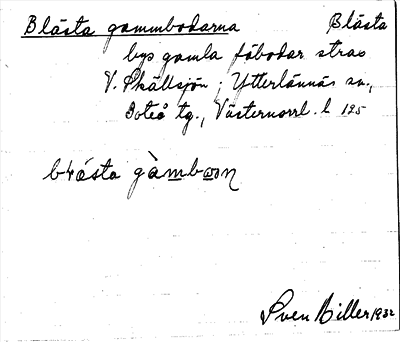 Blästa gammbodarna Blästa
bys gamla fäbodar strax
V. Skällsjön; Ytterlännäs sn.,
Boteå tg., Västernorrl. l 125
gàmbωɷn
Sven Hiller 1932